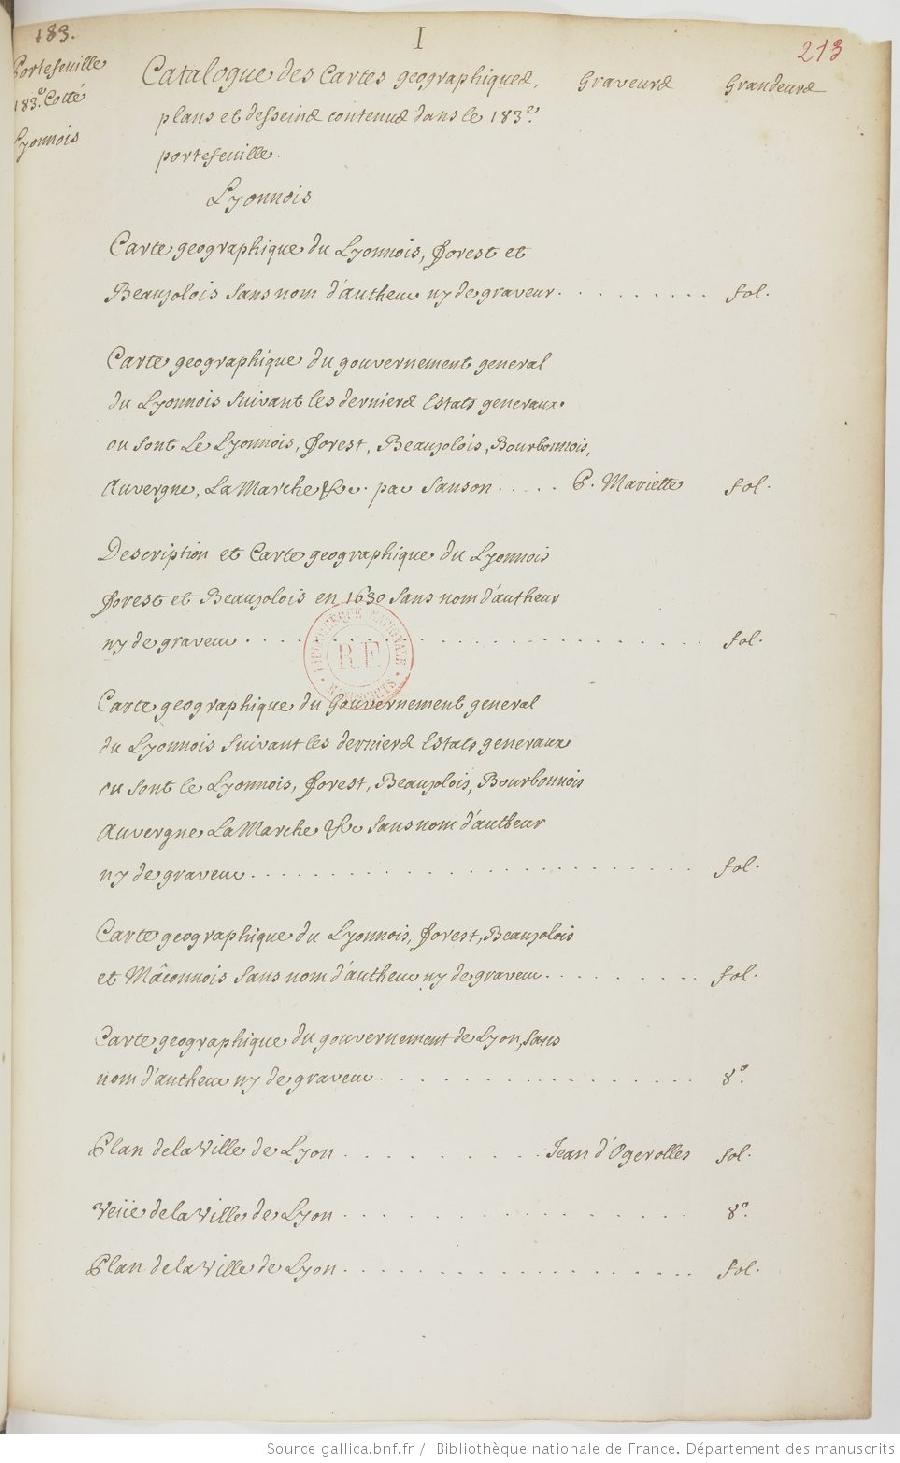 183.
I
213
Portefeuille
183.e Cotté
Lyonnois
Catalogue des Cartes geographiques,
Graveurs
Grandeurs
plans et desseins contenus dans le 183.e
portefeuille.
Lyonnois
Carte geographique du Lyonnois, forest et
Beaujolois sans nom d'autheur ny de graveur. . . . . . . . . fol.
Carte geographique du gouvernement general
du Lyonnois suivant les derniers Estats generaux.
ou sont Le Lyonnois, forest, Beaujolois, Bourbonnois,
Auvergne, La Marche &c. par Sanson . . . . . P. Mariette fol.
Description et Carte geographique du Lyonnois
forest et Beaujolois en 1630 sans nom d'autheur
ny de graveur . . . . . . . . . . . . . . . . . . . . fol.
BIBLIOTHEQUE NATIONALE
RF
MANUSCRITS
Carte geographique du Gouvernement general
du Lyonnois suivant les derniers Estats generaux
ou sont le Lyonnois, forest, Beaujolois, Bourbonnois
Auvergne La Marche &c sans nom d'autheur
ny de graveur . . . . . . . . . . . . . . . . . . . . fol.
Carte geographique du Lyonnois, forest, Beaujolois
et Mâconnois sans nom d'autheur ny de graveur. . . . . . . . fol.
Carte geographique du gouvernement de Lyon, sans
nom d'autheur ny de graveur . . . . . . . . . . . . . . . 8.o
Plan de la Ville de Lyon . . . . . . . . . Jean d'Ogerolles fol.
Veüe de la Ville de Lyon . . . . . . . . . . . . . . . . 8.o
Plan de la Ville de Lyon . . . . . . . . . . . . . . . . fol.
Source gallica.bnf.fr / Bibliothèque nationale de France. Département des manuscrits